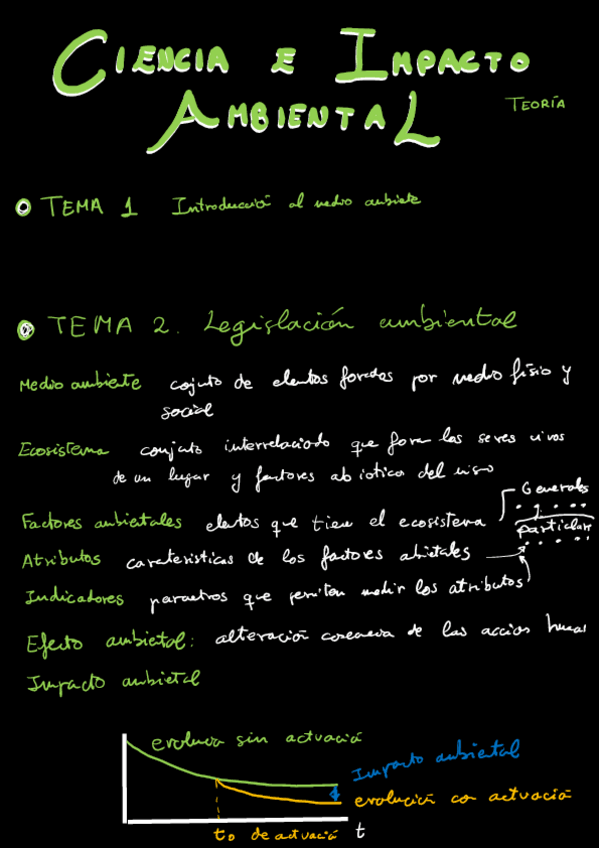 CIENCIA E IMPACTO
AMBIENTAL TEORÍA
TEMA 1 Introducción al medio ambiete
TEMA 2. Legislación ambiental
Medio ambiente cojuto de elmtos formdos por medio físio y
social
Ecosistema conjuto interrelaciodo que form los seres vivos
de un lugar y factores abióticos del mismo
Factores ambietales elmtos que tien el ecosistema Generales
particulares
Atributos caraterísticas de los factores abietales
Indicadores parametros que permiten medir los atributos
Efecto ambietal: alteración de las accios humas
Impacto ambietal
evolució sin actuació
Impacto ambiental
evolución con actuación
to de actuació t